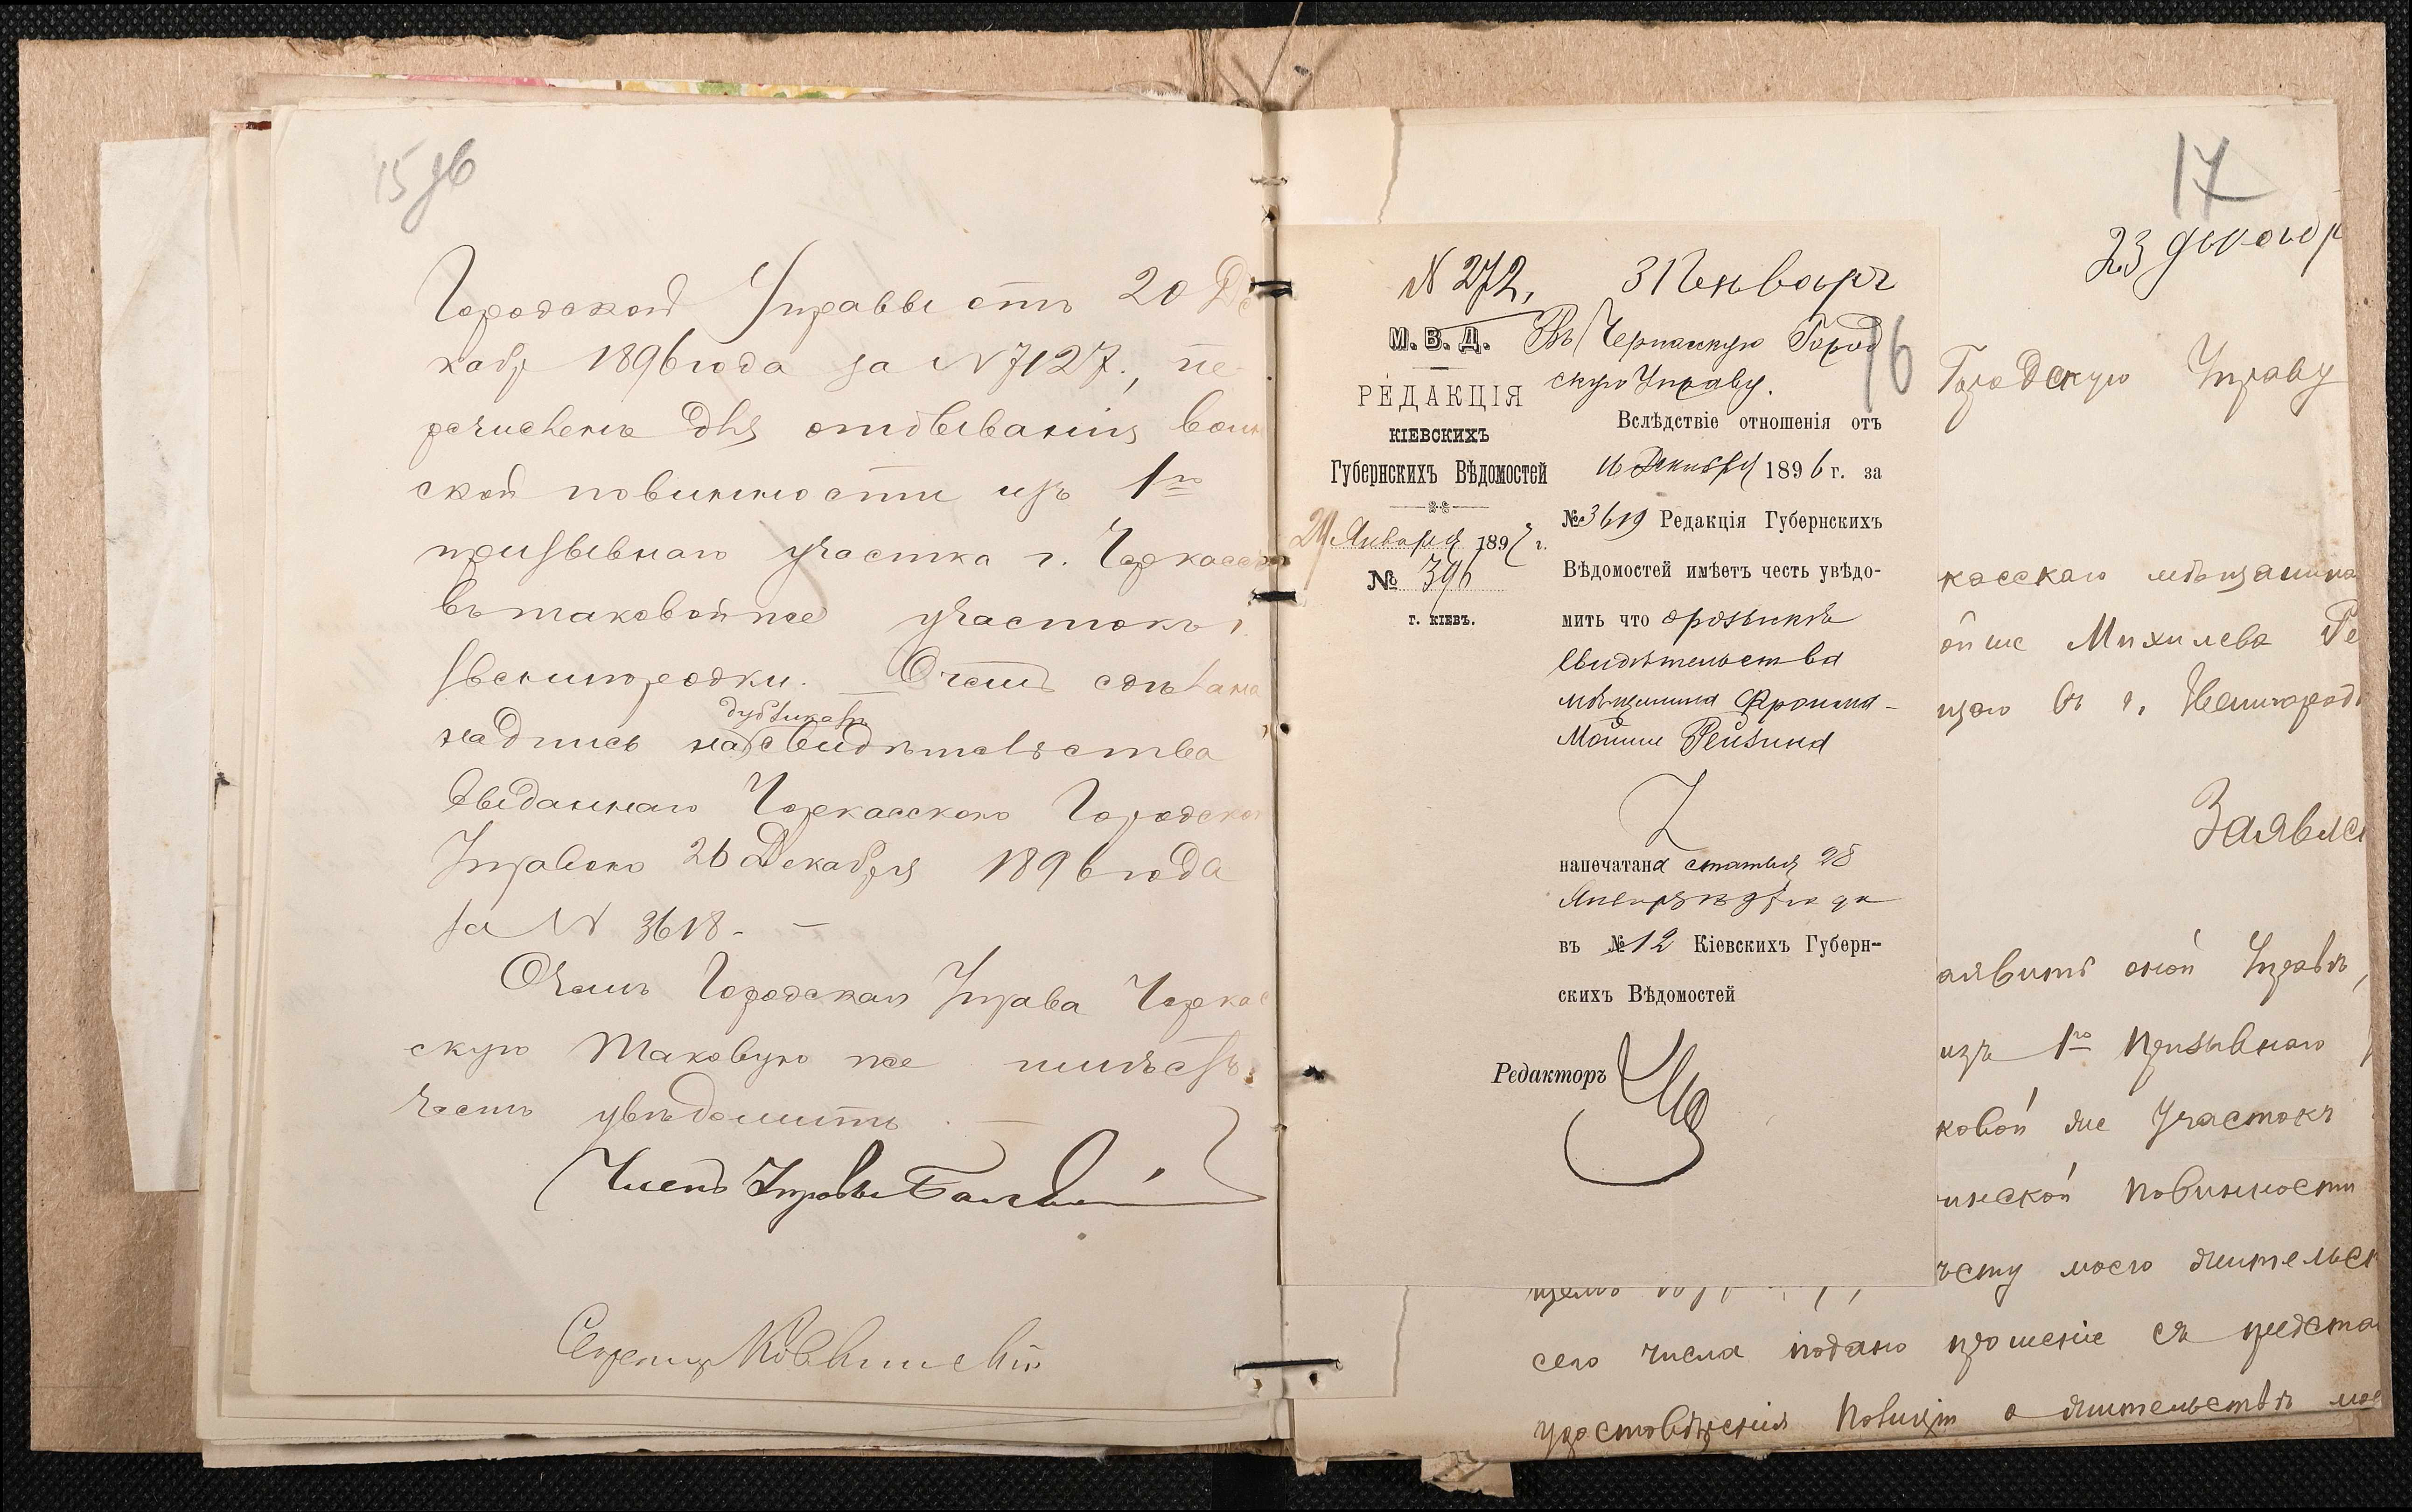 15 об
Городской Управы отъ 20 Де
кабр 1896 года за N 7127., пе
речисленъ для отбыванія воин
ской повинности изъ 1го
призывнаго участка г. Черкассъ
въ таковой же участокъ г.
Звенигородки. О чемъ сдѣлана
надпись на дубликатъ свидѣтельства
выданнаго Черкасскою Городскою
Управою 26 Декабря 1896 года
за N 3618. —
О чемъ Городская Управа Черкас
скую таковую же имѣетъ
честь увѣдомить. —
Членъ Управы
Секретарь
N 272, 31 Январь
М. В. Д.
РЕДАКЦІЯ
КІЕВСКИХЪ
Губернскихъ Вѣдомостей
29 Января 1897 г.
№ 396
г. КІЕВЪ.
16
Въ Черкасскую Город
скую Управу.
Вслѣдствіе отношенія отъ
16 Декабря 1896 г. за
№ 3619 Редакція Губернскихъ
Вѣдомостей имѣетъ честь увѣдо-
мить что о розыскѣ
свидѣтельства
мѣщанина Фроима-
Мошки Рейзина
напечатана статья 28
Января
въ № 12 Кіевскихъ Губерн-
скихъ Вѣдомостей
Редакторъ
17
23 декабр
Городскую Управу
касскаго мѣщанина
Михилева Ре
щаго въ г. Звенигород
Заявле
аявить оной Управѣ,
изъ 1го призывнаго
ковой же участокъ
инской повинности
ѣсту моего жительст
сего числа подано прошеніе съ предста
удостовѣренія Полиціи о жительствѣ мое